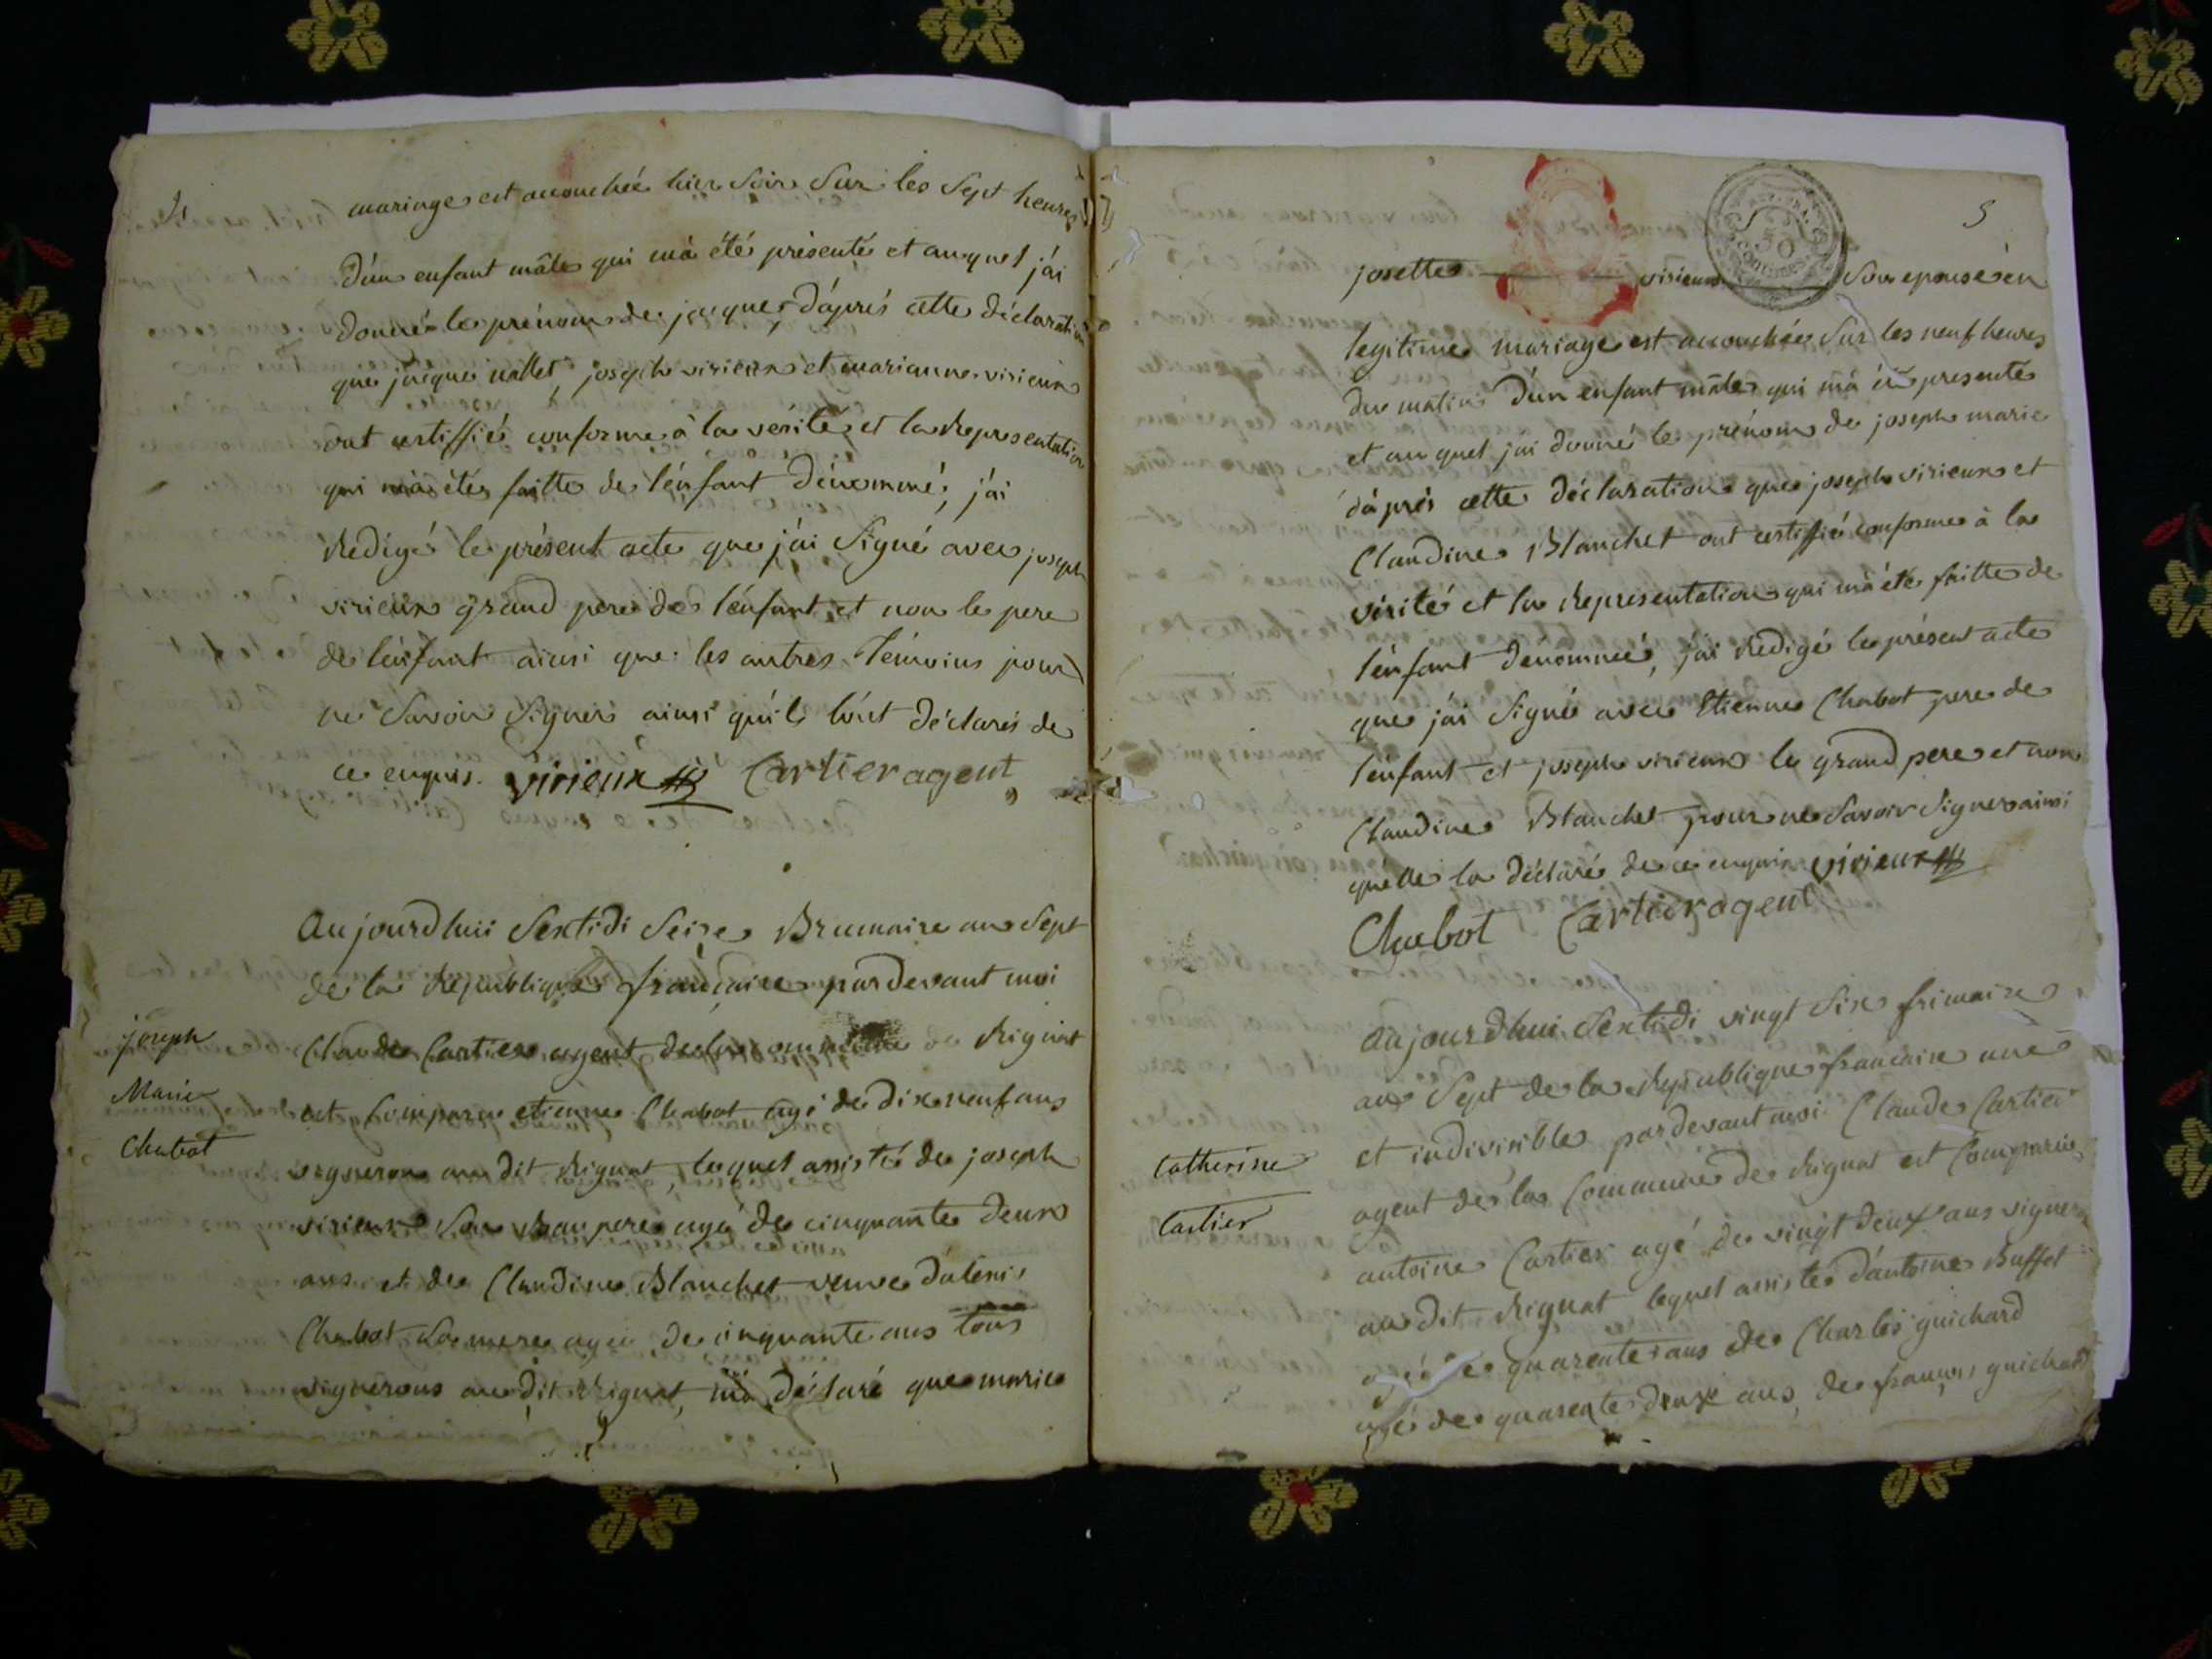 mariage est acouchée hier soir sur les sept heures
d'un enfant mâle qui m'a été présenté et auquel j'ai
donné le prénom de jacque, d'après cette déclaration
que jacque nallet, joseph virieux et marianne virieux
ont certiffié conforme à la vérité et la Representation
qui m'a été faitte de l'enfant dénommé, j'ai
Redigé le présent acte que j'ai signé avec joseph
virieux grand pere de l'enfant et non le pere
de l'enfant ainsi que les autres témoins pour
ne savoir signer ainsi qu'ils l'ont déclarés de
ce enquis. virieux Cartier agent
Aujourd'huii Sextidi Seize Brumaire an Sept
de la Republique française pardevant moi
Claude Cartier agent de la commune de Rignat
est comparu etienne Chabot agé de dix neuf ans
vigneron au dit Rignat, lequel assisté de joseph
virieux son beau pere agé de cinquante deux
ans et de Claudine Blanchet veuve d'alexis
Chabot sa mere agée de cinquante ans tous
vignerons au dit Rignat, m'a déclaré que marie
joseph
Marie
Chabot
5
REP. FRA.
50
CENTIMES
josette virieux son epouse en
legitime mariage est acouchée sur les neuf heures
du matin d'un enfant mâle qui m'a été presenté
et auquel j'ai donné le prénom de joseph marie
d'après cette déclaration que joseph virieux et
Claudine Blanchet ont certiffié conforme à la
vérité et la Representation qui m'a été faitte de
l'enfant dénommé, j'ai Redigé le présent acte
que j'ai signé avec Etienne Chabot pere de
l'enfant et joseph virieux le grand pere et non
Claudine Blanchet pour ne savoir signer ainsi
qu'elle la déclaré de ce enquis virieux
Chabot Cartier agent
Aujourd'hui Sextidi vingt six frimaire
an Sept de la Republique francaise une
et indivisible pardevant moi Claude Cartier
agent de la Commune de Rignat est Comparu
antoine Cartier agé de vingt deux ans vigneron
au dit Rignat lequel assisté d'antoine Buffet
agé de quarente ans de Charles guichard
agé de quarente deux ans, de françois guichard
Catherine
Cartier